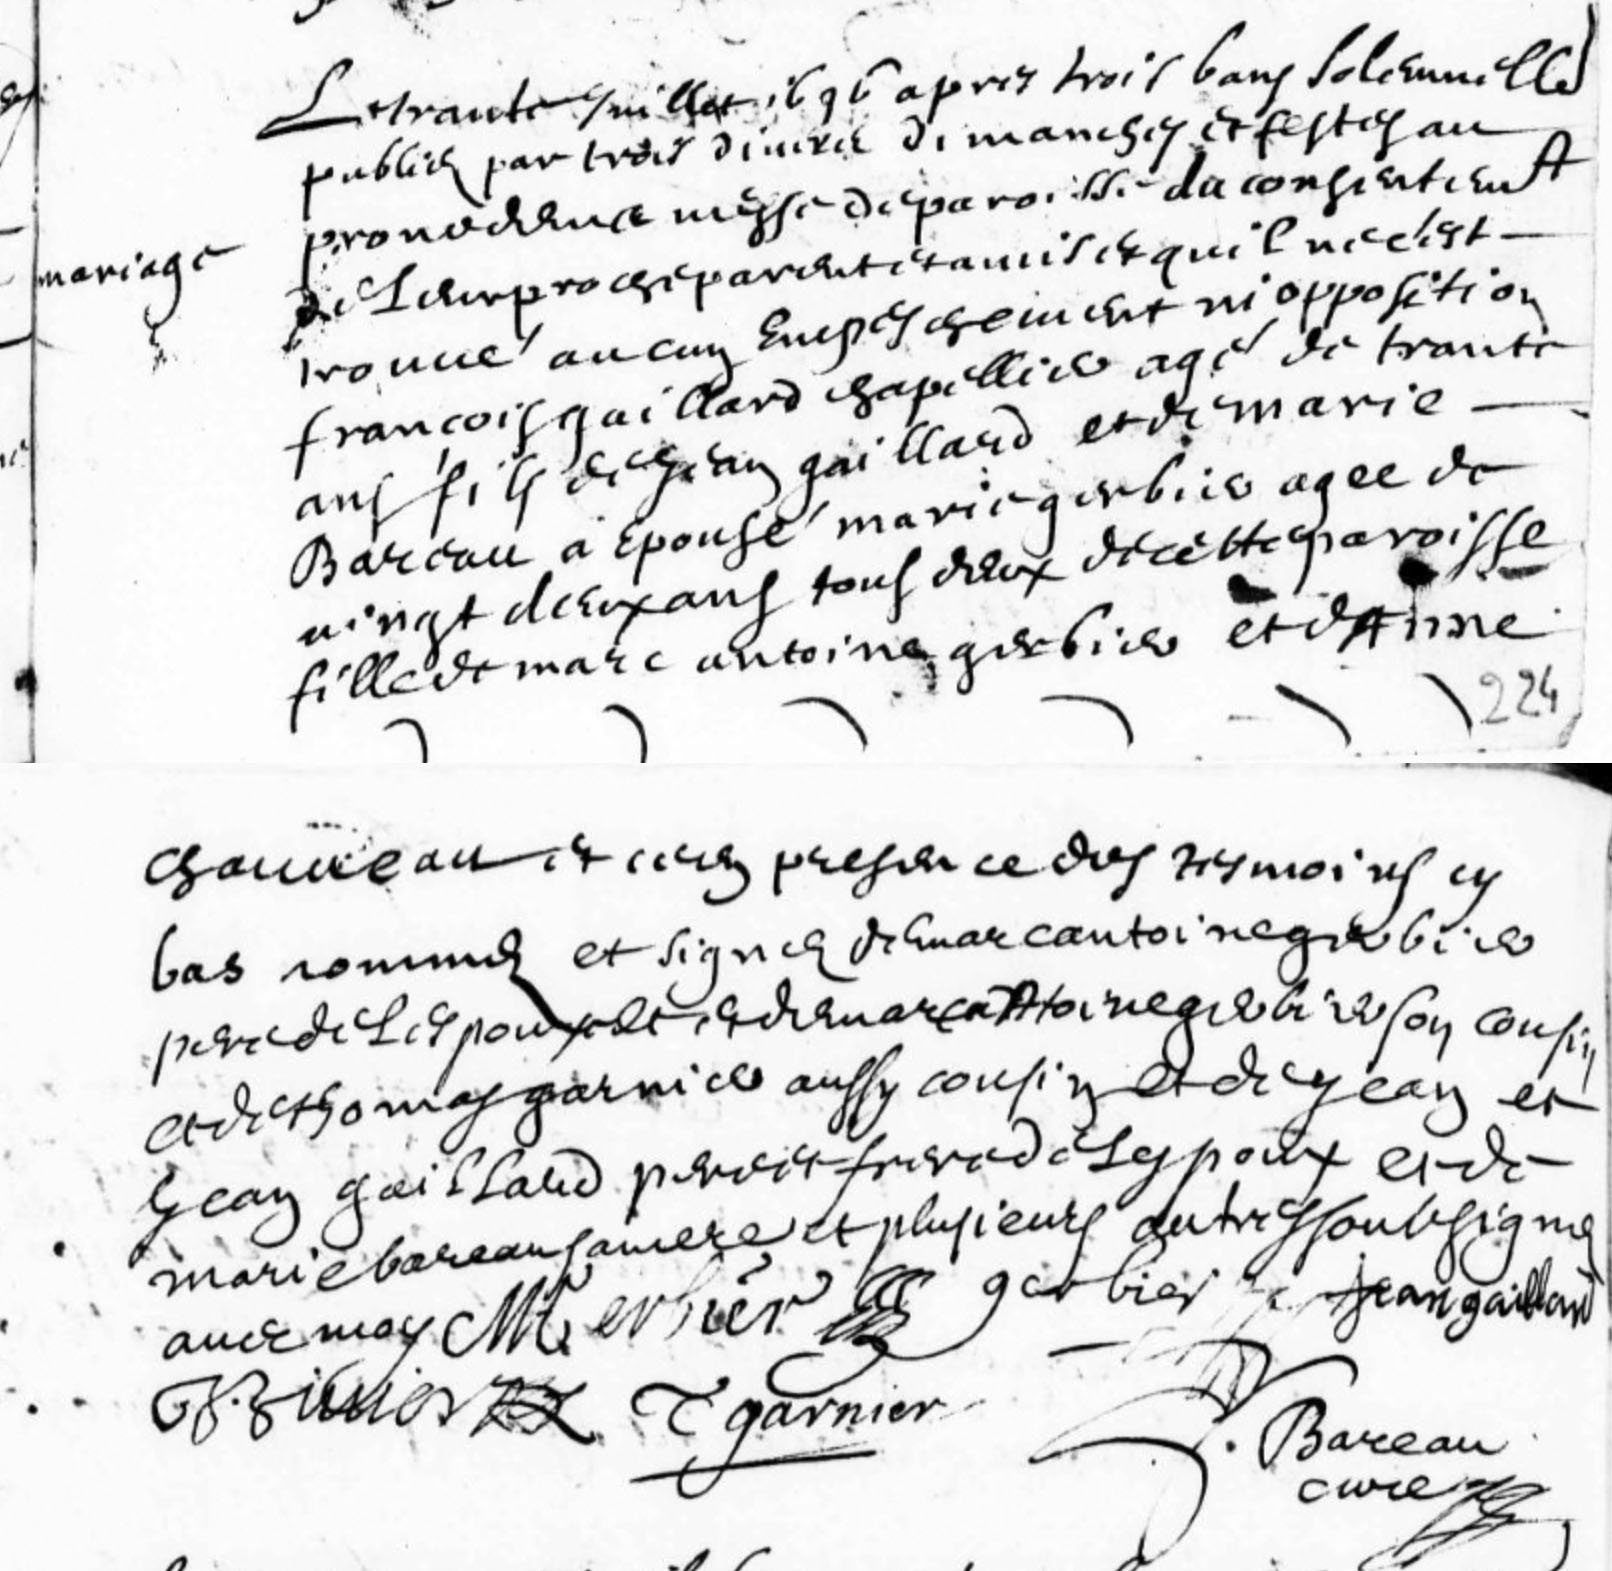 Le trante Juillet 1696 apres trois bans Solemnelles
publies par trois divers dimanches et festes au
prone de une messe de paroisse du consentement
de Leur proche parent et amis et qui l ne cest
trouué aucun Enpeschement ni opposition
mariage
francois gaillard chapellier agé de trante
ans fils de Jean gaillard et de marie
Bareau a epousé marie gerbier agee de
vingt deux ans tous deux de cette paroisse
fille de marc antoine gerbier et d Anne
224
chauveau et ce en presence des tesmoins cy
bas nommes et signes de marc antoine gerbier
pere de Lespouse et de marc antoine gerbier son cousin
et de thomas garnier aussy cousin et de Jean et
Jean gaillard pere et frere de Lespoux et de
marie bareau sa mere et plusieurs autres soubsignes
avec moy M gerbier gerbier Jean gaillard
T garnier
Bareau
curé